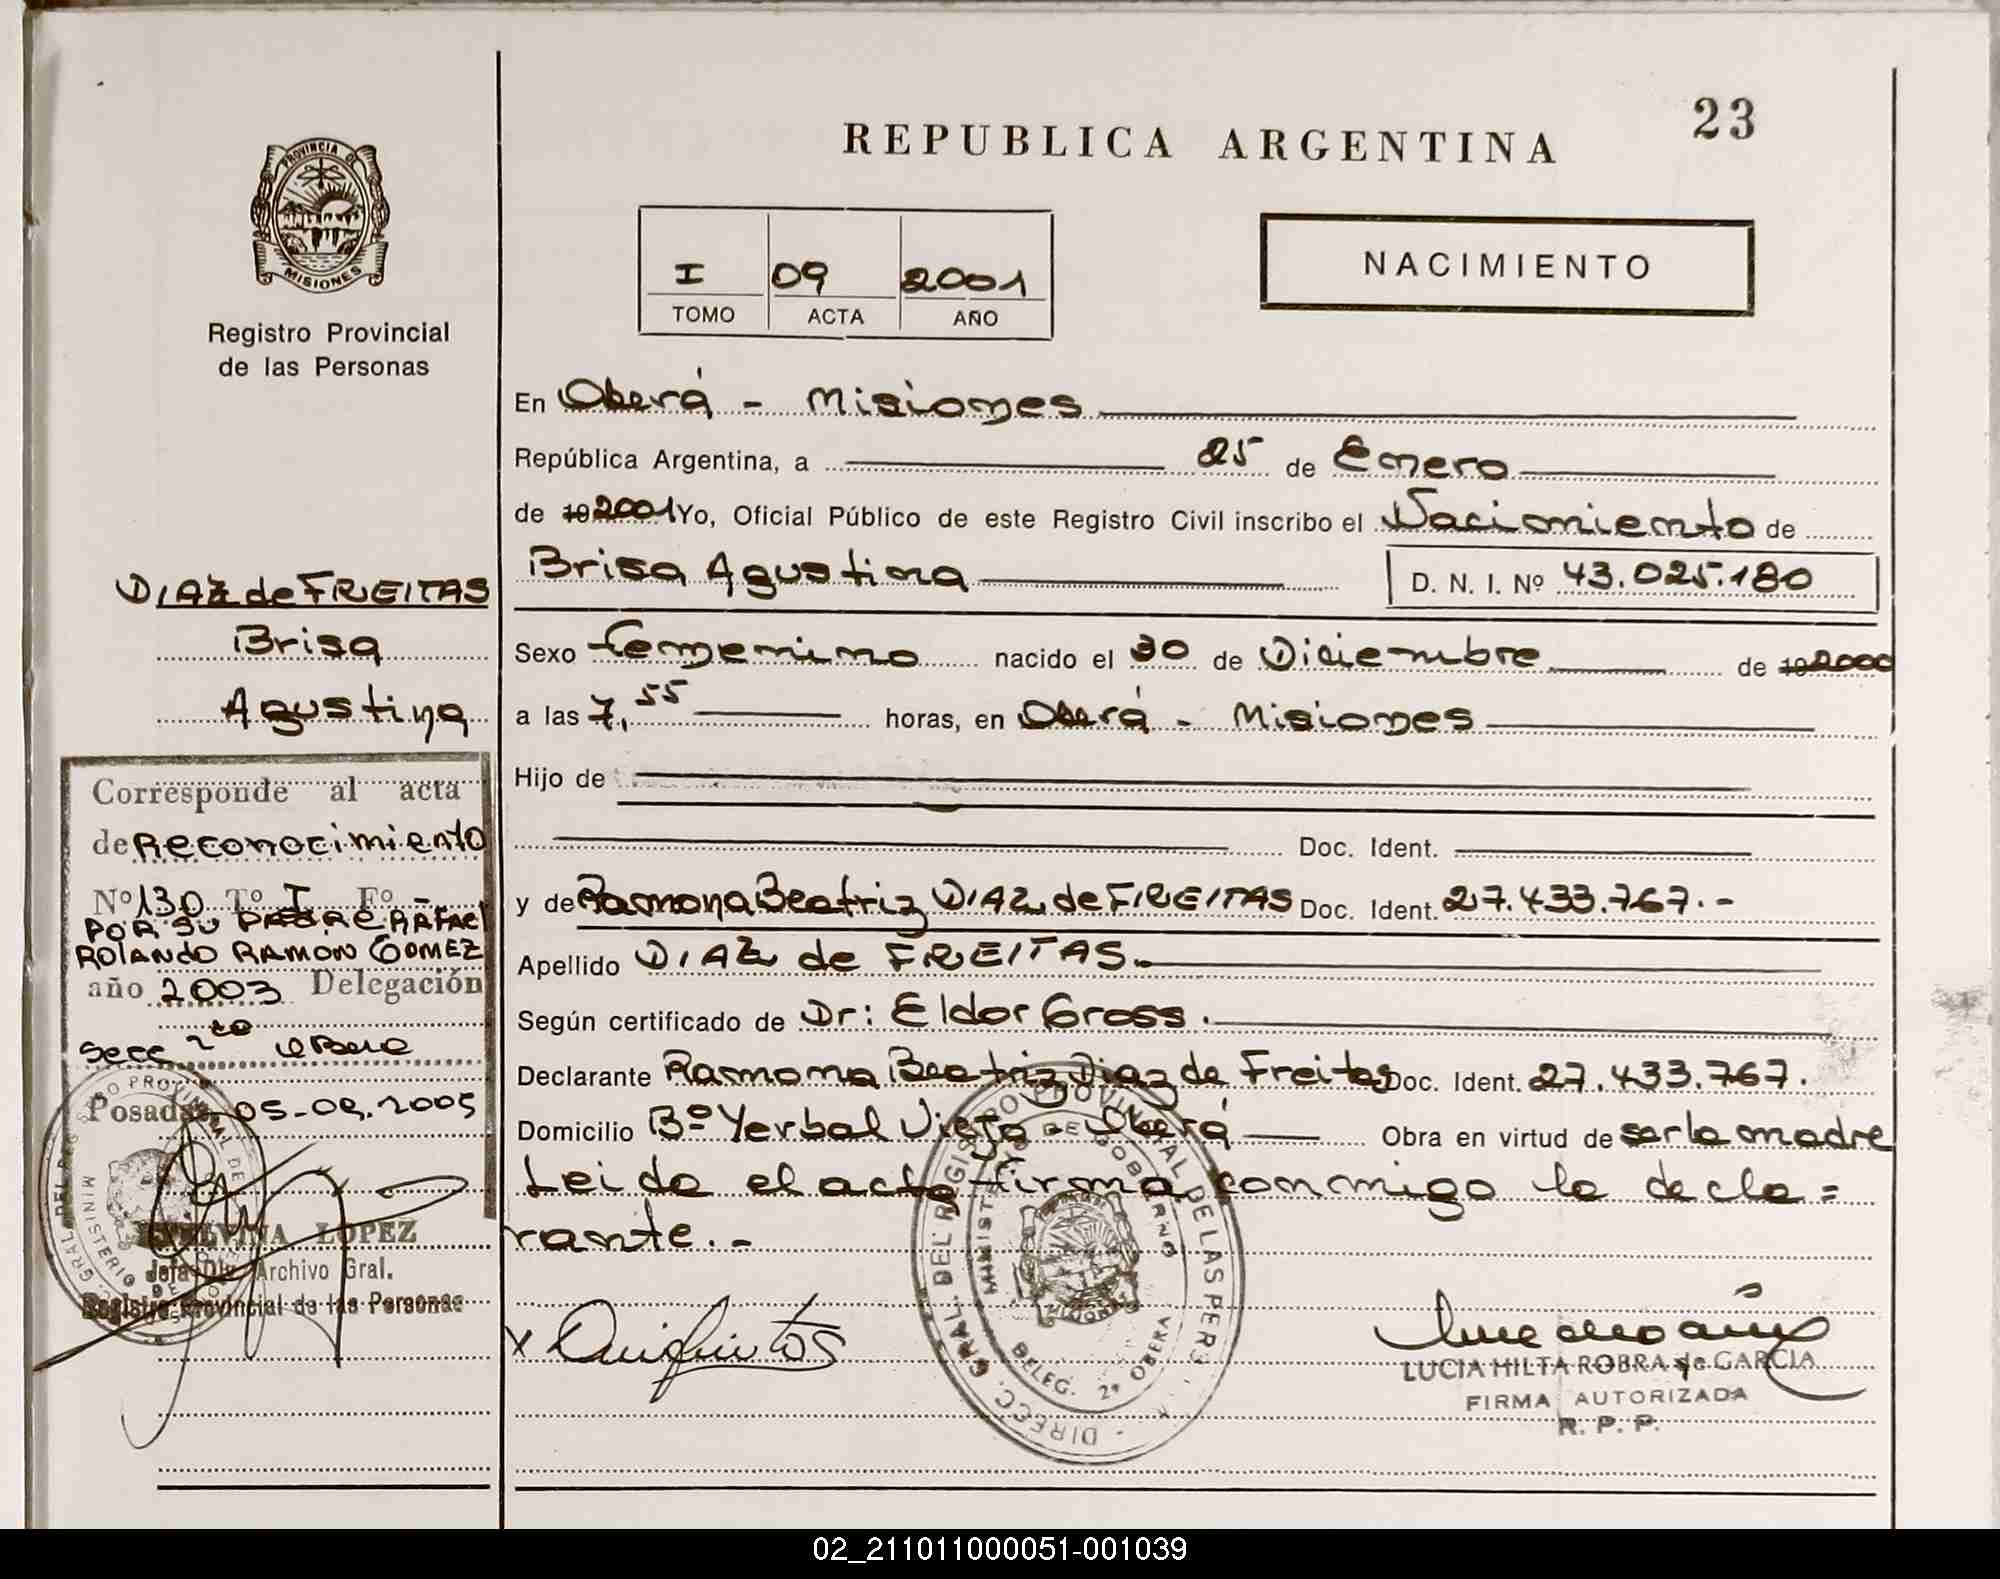 23
REPUBLICA ARGENTINA
PROVINCIA DE
MISIONES
Registro Provincial
de las Personas
I 09 2001
TOMO ACTA AÑO
NACIMIENTO
En Oberá - Misiones
República Argentina, a 25 de Enero
de 19 2001 Yo, Oficial Público de este Registro Civil inscribo el Nacimiento de
Brisa Agustina D. N. I. Nº 43.025.180
Sexo femenino nacido el 30 de Diciembre de 19 2000
a las 7,55 horas, en Oberá - Misiones
Hijo de
Doc. Ident.
y de Ramona Beatriz DIAZ de FREITAS Doc. Ident. 27.433.767.-
Apellido DIAZ de FREITAS.
Según certificado de Dr: Eldor Gross.
Declarante Ramona Beatriz Diaz de Freitas Doc. Ident. 27.433.767.
Domicilio Bº Yerbal Viejo - Oberá Obra en virtud de ser la madre
Leida el acta firma conmigo la decla=
rante.-
DIRECC. GRAL. DEL REGISTRO PROVINCIAL DE LAS PERS.
MINISTERIO DE GOBIERNO
DELEG. 2ª OBERA
LUCIA HILTA ROBRA de GARCIA
FIRMA AUTORIZADA
R. P. P.
DIAZ de FREITAS
Brisa
Agustina
Corresponde al acta
de Reconocimiento
Nº 130 Tº I Fº -
POR SU PADRE RAFAEL
ROLANDO RAMON GOMEZ
año 2003 Delegación
Secc 2da Obera
Posadas 05-09-2005
LOPEZ
Jefa Div. Archivo Gral.
Registro Provincial de las Personas
02_211011000051-001039